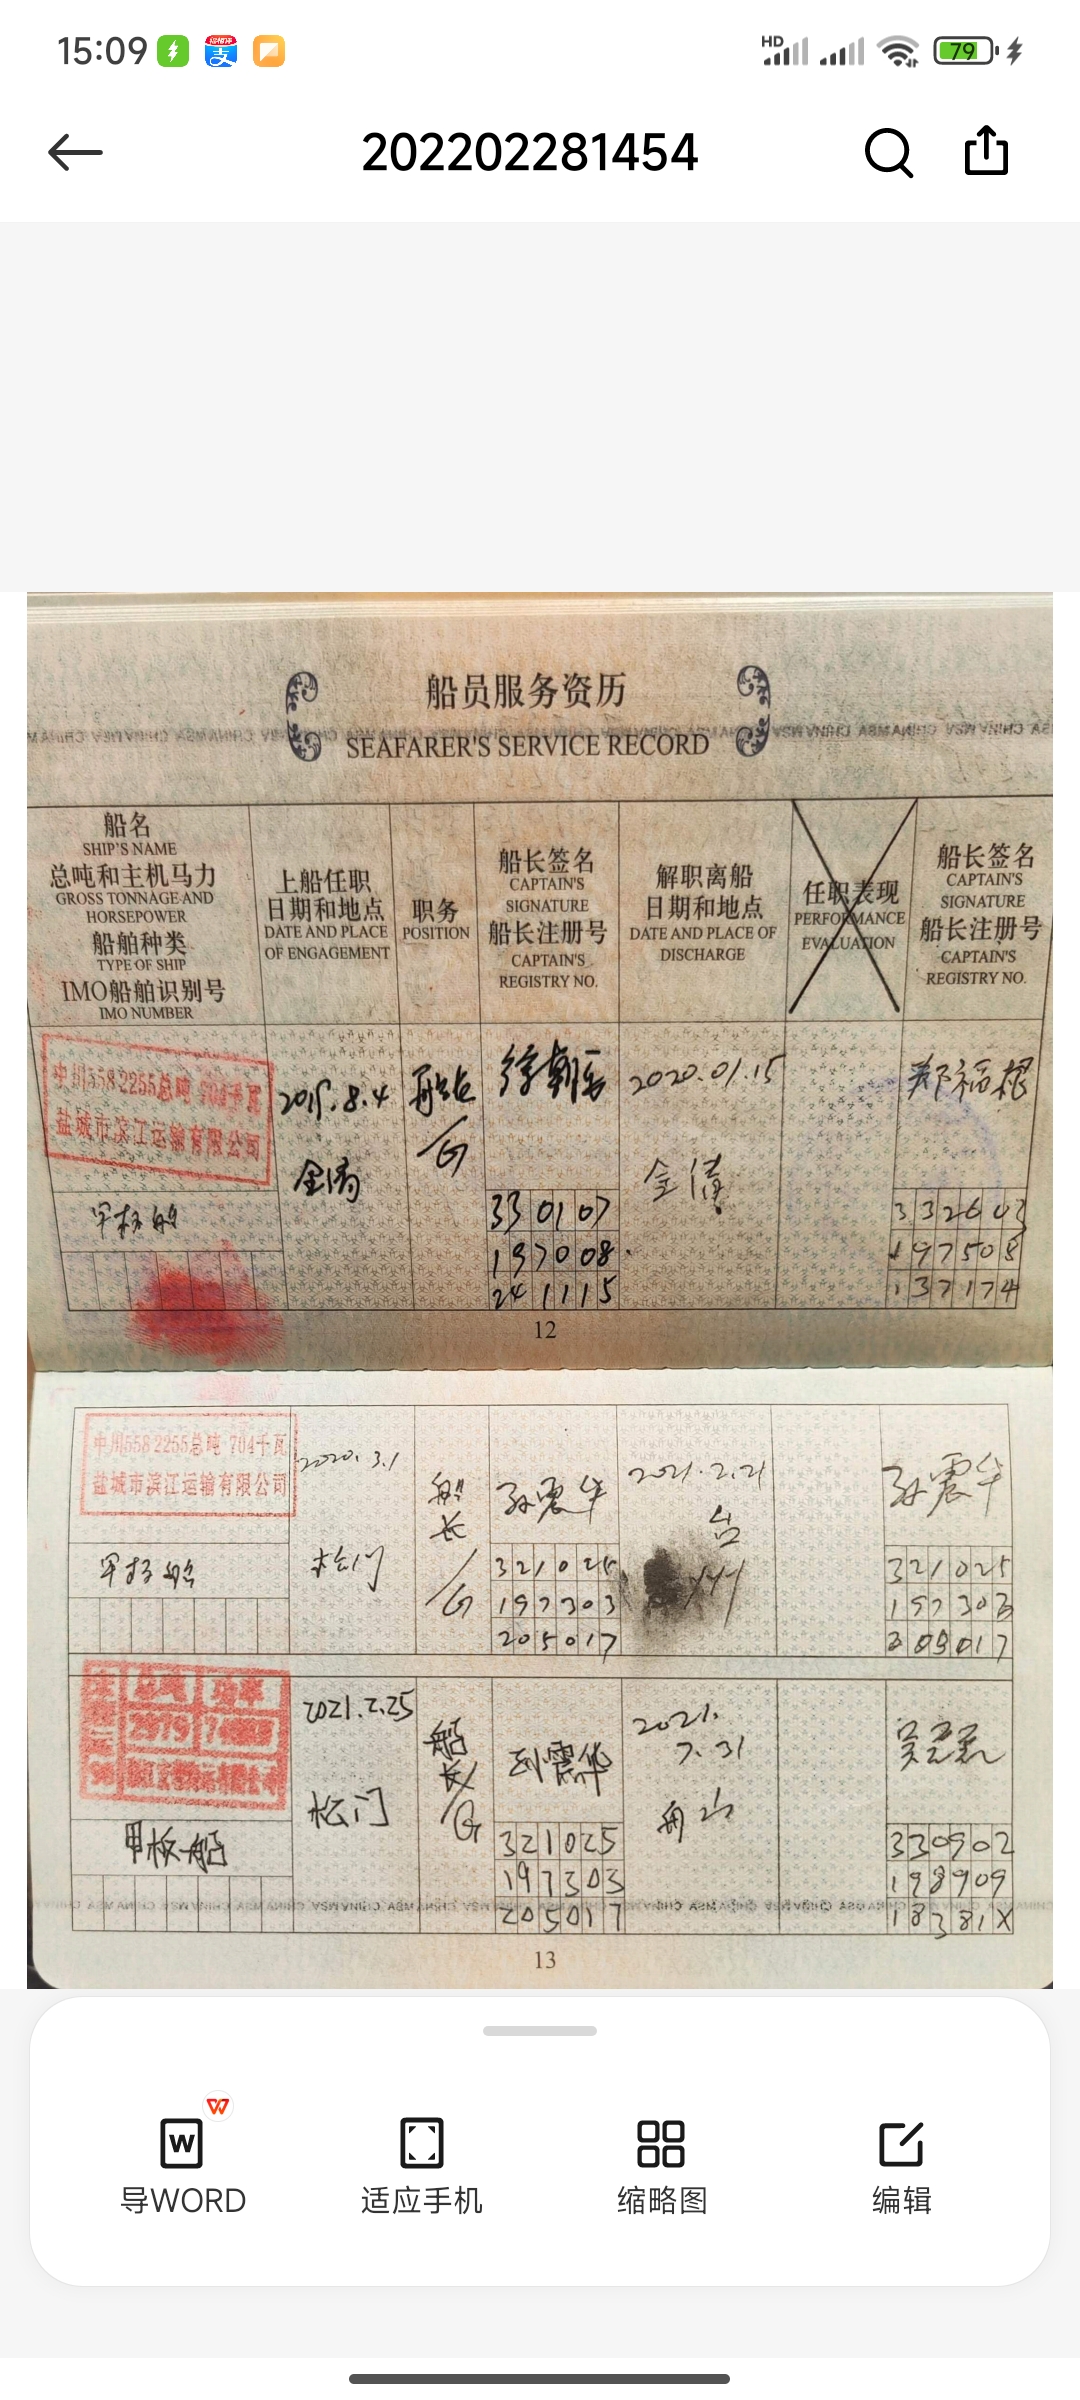 15:09
HD
79
202202281454
船员服务资历
SEAFARER'S SERVICE RECORD
船名
SHIP'S NAME
总吨和主机马力
GROSS TONNAGE AND
HORSEPOWER
船舶种类
TYPE OF SHIP
IMO船舶识别号
IMO NUMBER
上船任职
日期和地点
DATE AND PLACE
OF ENGAGEMENT
职务
POSITION
船长签名
CAPTAIN'S
SIGNATURE
船长注册号
CAPTAIN'S
REGISTRY NO.
解职离船
日期和地点
DATE AND PLACE OF
DISCHARGE
任职表现
PERFORMANCE
EVALUATION
船长签名
CAPTAIN'S
SIGNATURE
船长注册号
CAPTAIN'S
REGISTRY NO.
中川558 2255总吨 704千瓦
盐城市滨江运输有限公司
甲板船
8.4
金清
330107
197008
241115
2020.01.15
金清
郑福根
197508
12
中川558 2255总吨 704千瓦
盐城市滨江运输有限公司
甲板船
2020.3.1
松门
船
长
G
孙震华
321025
197303
205017
2021.2.21
台
州
孙震华
321025
197303
205017
甲板船
2021.2.25
松门
船
长
G
孙震华
321025
197303
205017
2021.
7.31
舟山
330902
198909
18381X
13
导WORD
适应手机
缩略图
编辑